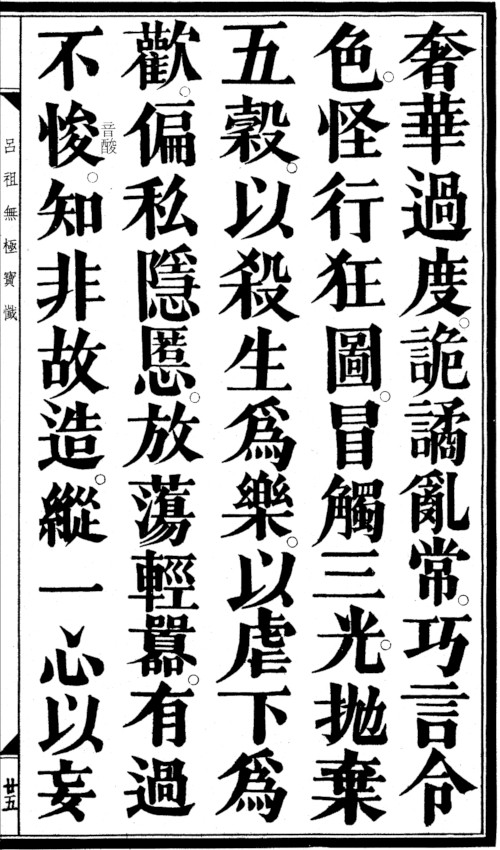 奢華過度。詭譎亂常。巧言令
色。怪行狂圖。冒觸三光。拋棄
五穀。以殺生為樂。以虐下為
歡。偏私隱慝。放蕩輕囂。有過
不悛音酸。知非故造。縱一心以妄
呂祖無極寶懺
廿五